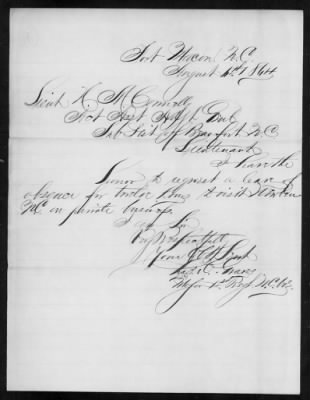 Fort Macon N.C.
August 4th 1864
Lieut
Sub Dist of Beaufort N.C.
Lieutenant
I have the
honor to request a leave of
absence for twelve days to visit New Bern
N.C. on private business
I am Sir
Very Respectfully
Your Obt Servt
Major 1st Regt N.C. Vol